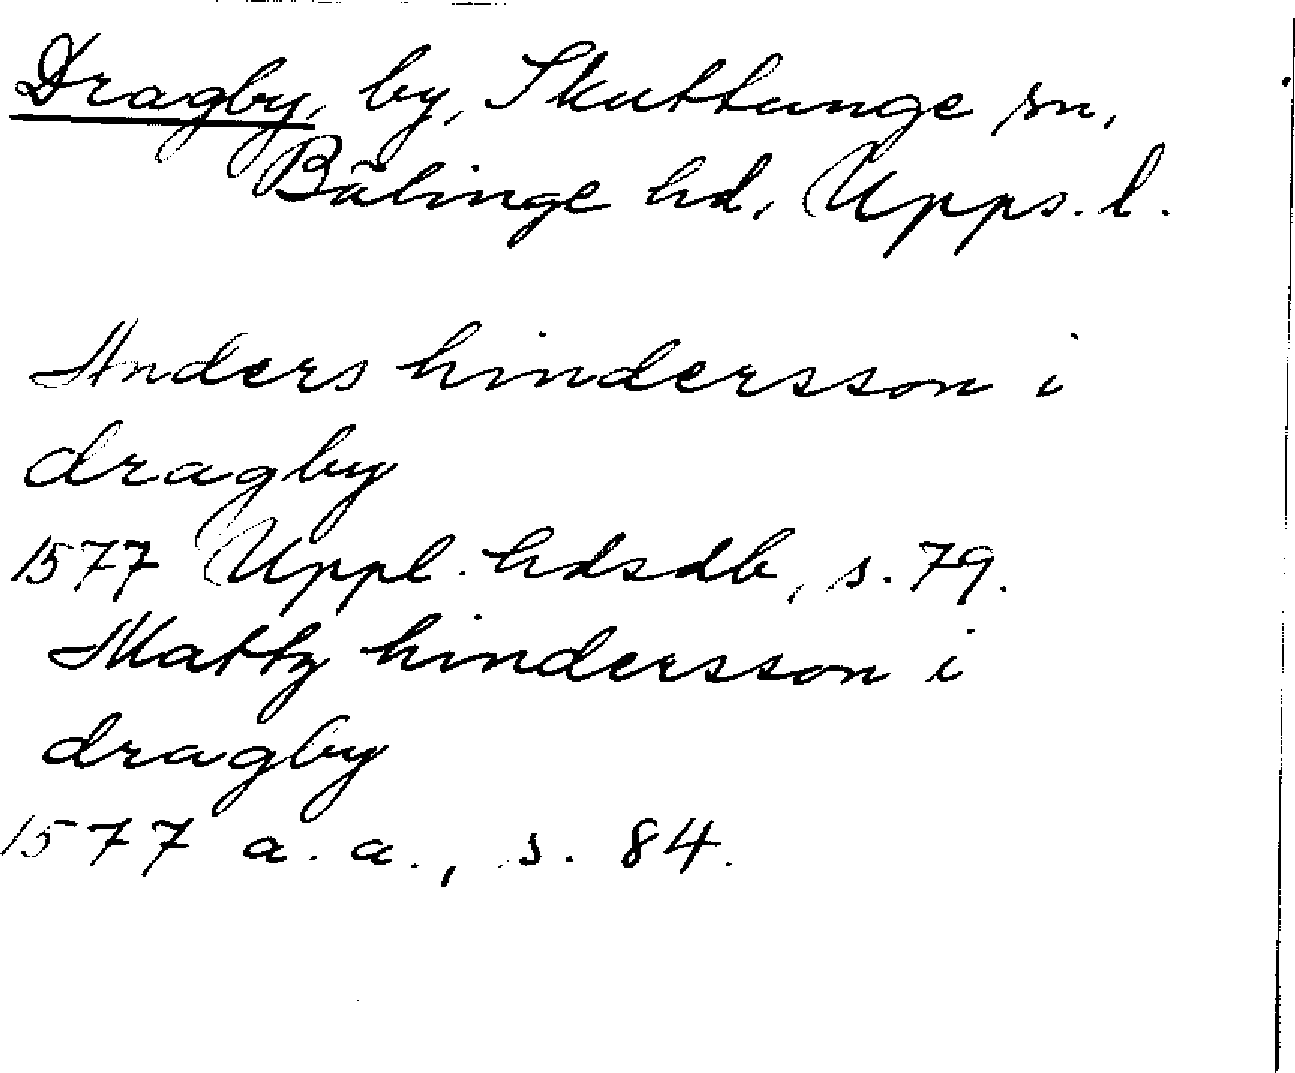 Dragby, by, Skuttunge sn,
Bälinge hd, Upps. l.
Anders hindersson i
dragby
1577 Uppl. hdsdb, s. 79.
Mattz hindersson i
dragby
1577 a. a., s. 84.